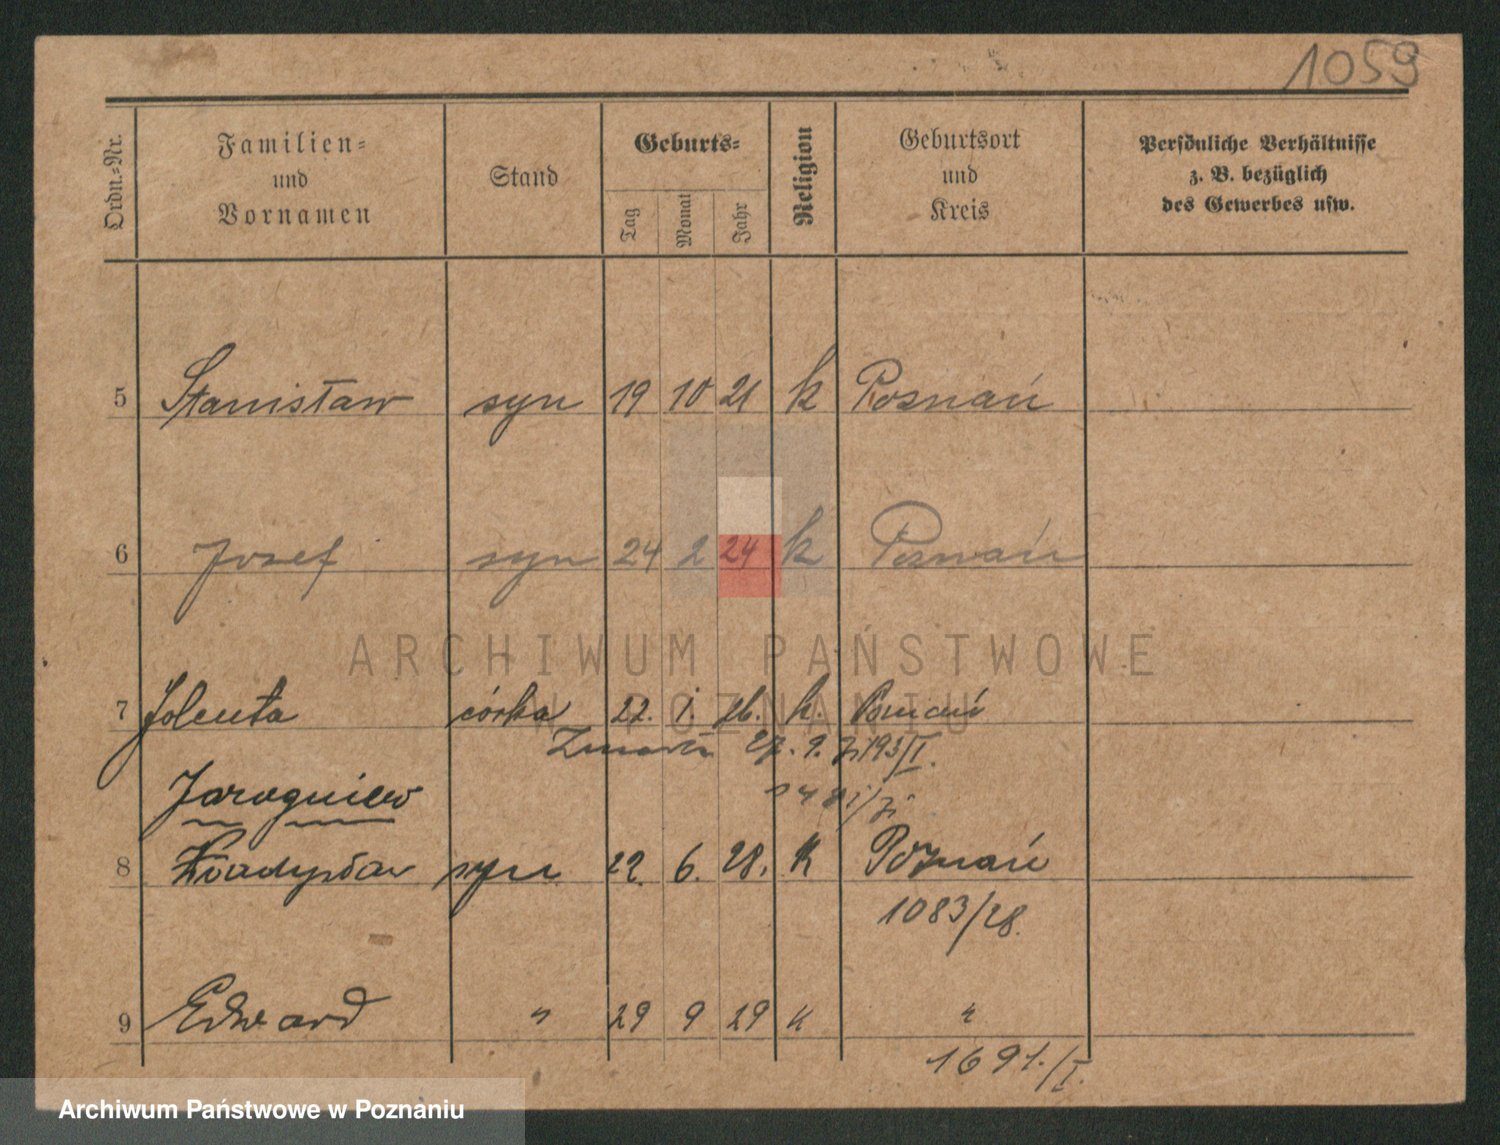 1059
Ordn.-Nr.
Familien-
und
Vornamen
Stand
Geburts-
Tag
Monat
Jahr
Religion
Geburtsort
und
Kreis
Persönliche Verhältnisse
z. B. bezüglich
des Gewerbes usw.
5 Stanisław syn 19 10 21 k Poznań
6 Josef syn 24 2 24 k Poznań
ARCHIWUM PAŃSTWOWE
W POZNANIU
7 Jolenta córka 22. 1. 26. k. Poznań
Zmarła 27. 9.
Jarogniew
8 Władysław syn 22. 6. 28. K Poznań
1083/28.
9 Edward " 29 9 29 k "
1691./I.
Archiwum Państwowe w Poznaniu